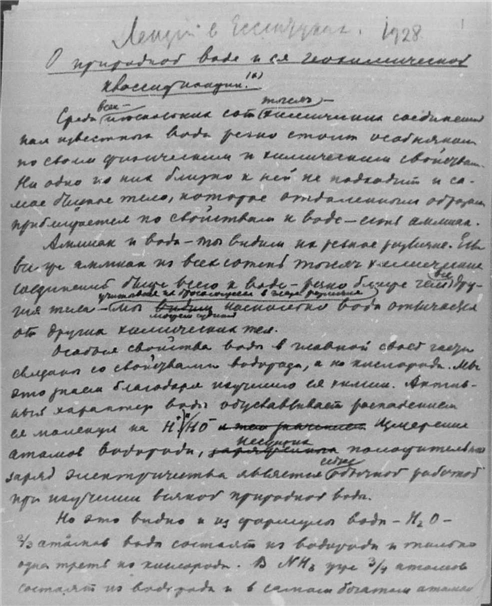 Лекция в Ессентуках. 1928 1
О природной воде и ея геохимической
классификации. (1)
Среди нескольких сот тысяч химических соединений
нам известных вода резко стоит особняком
по своим физическим и химическим свойствам.
Ни одно из них близко к ней не подходит и са-
мое близкое тело, которое отдаленным образом
приближается по свойствам к воде – есть аммиак.
Аммиак и вода – мы видим их резкое различие. Если
аммиак из всех сотен тысяч химических
соединений ближе всего к воде – резко ближе чем все дру-
гия тела – учитывая их
мы можем судить насколько вода отличается
от других химических тел.
Особые свойства воды в главной своей части
связаны со свойствами водорода, а не кислорода. Мы
это знаем благодаря изучению ея химии. Актив-
ный характер воды обуславливает распадением
ея молекул на H HO измерение
атомов водорода, несущих положительный
заряд электричества является сейчас обычной работой
при изучении всякой природной воды.
Но это видно и из формулы воды – H₂O –
2/3 атомов воды состоят из водорода и только
одна треть из кислорода. В NH₃ уже 3/4 атомов
состоят из водорода и в самом богатом атомами